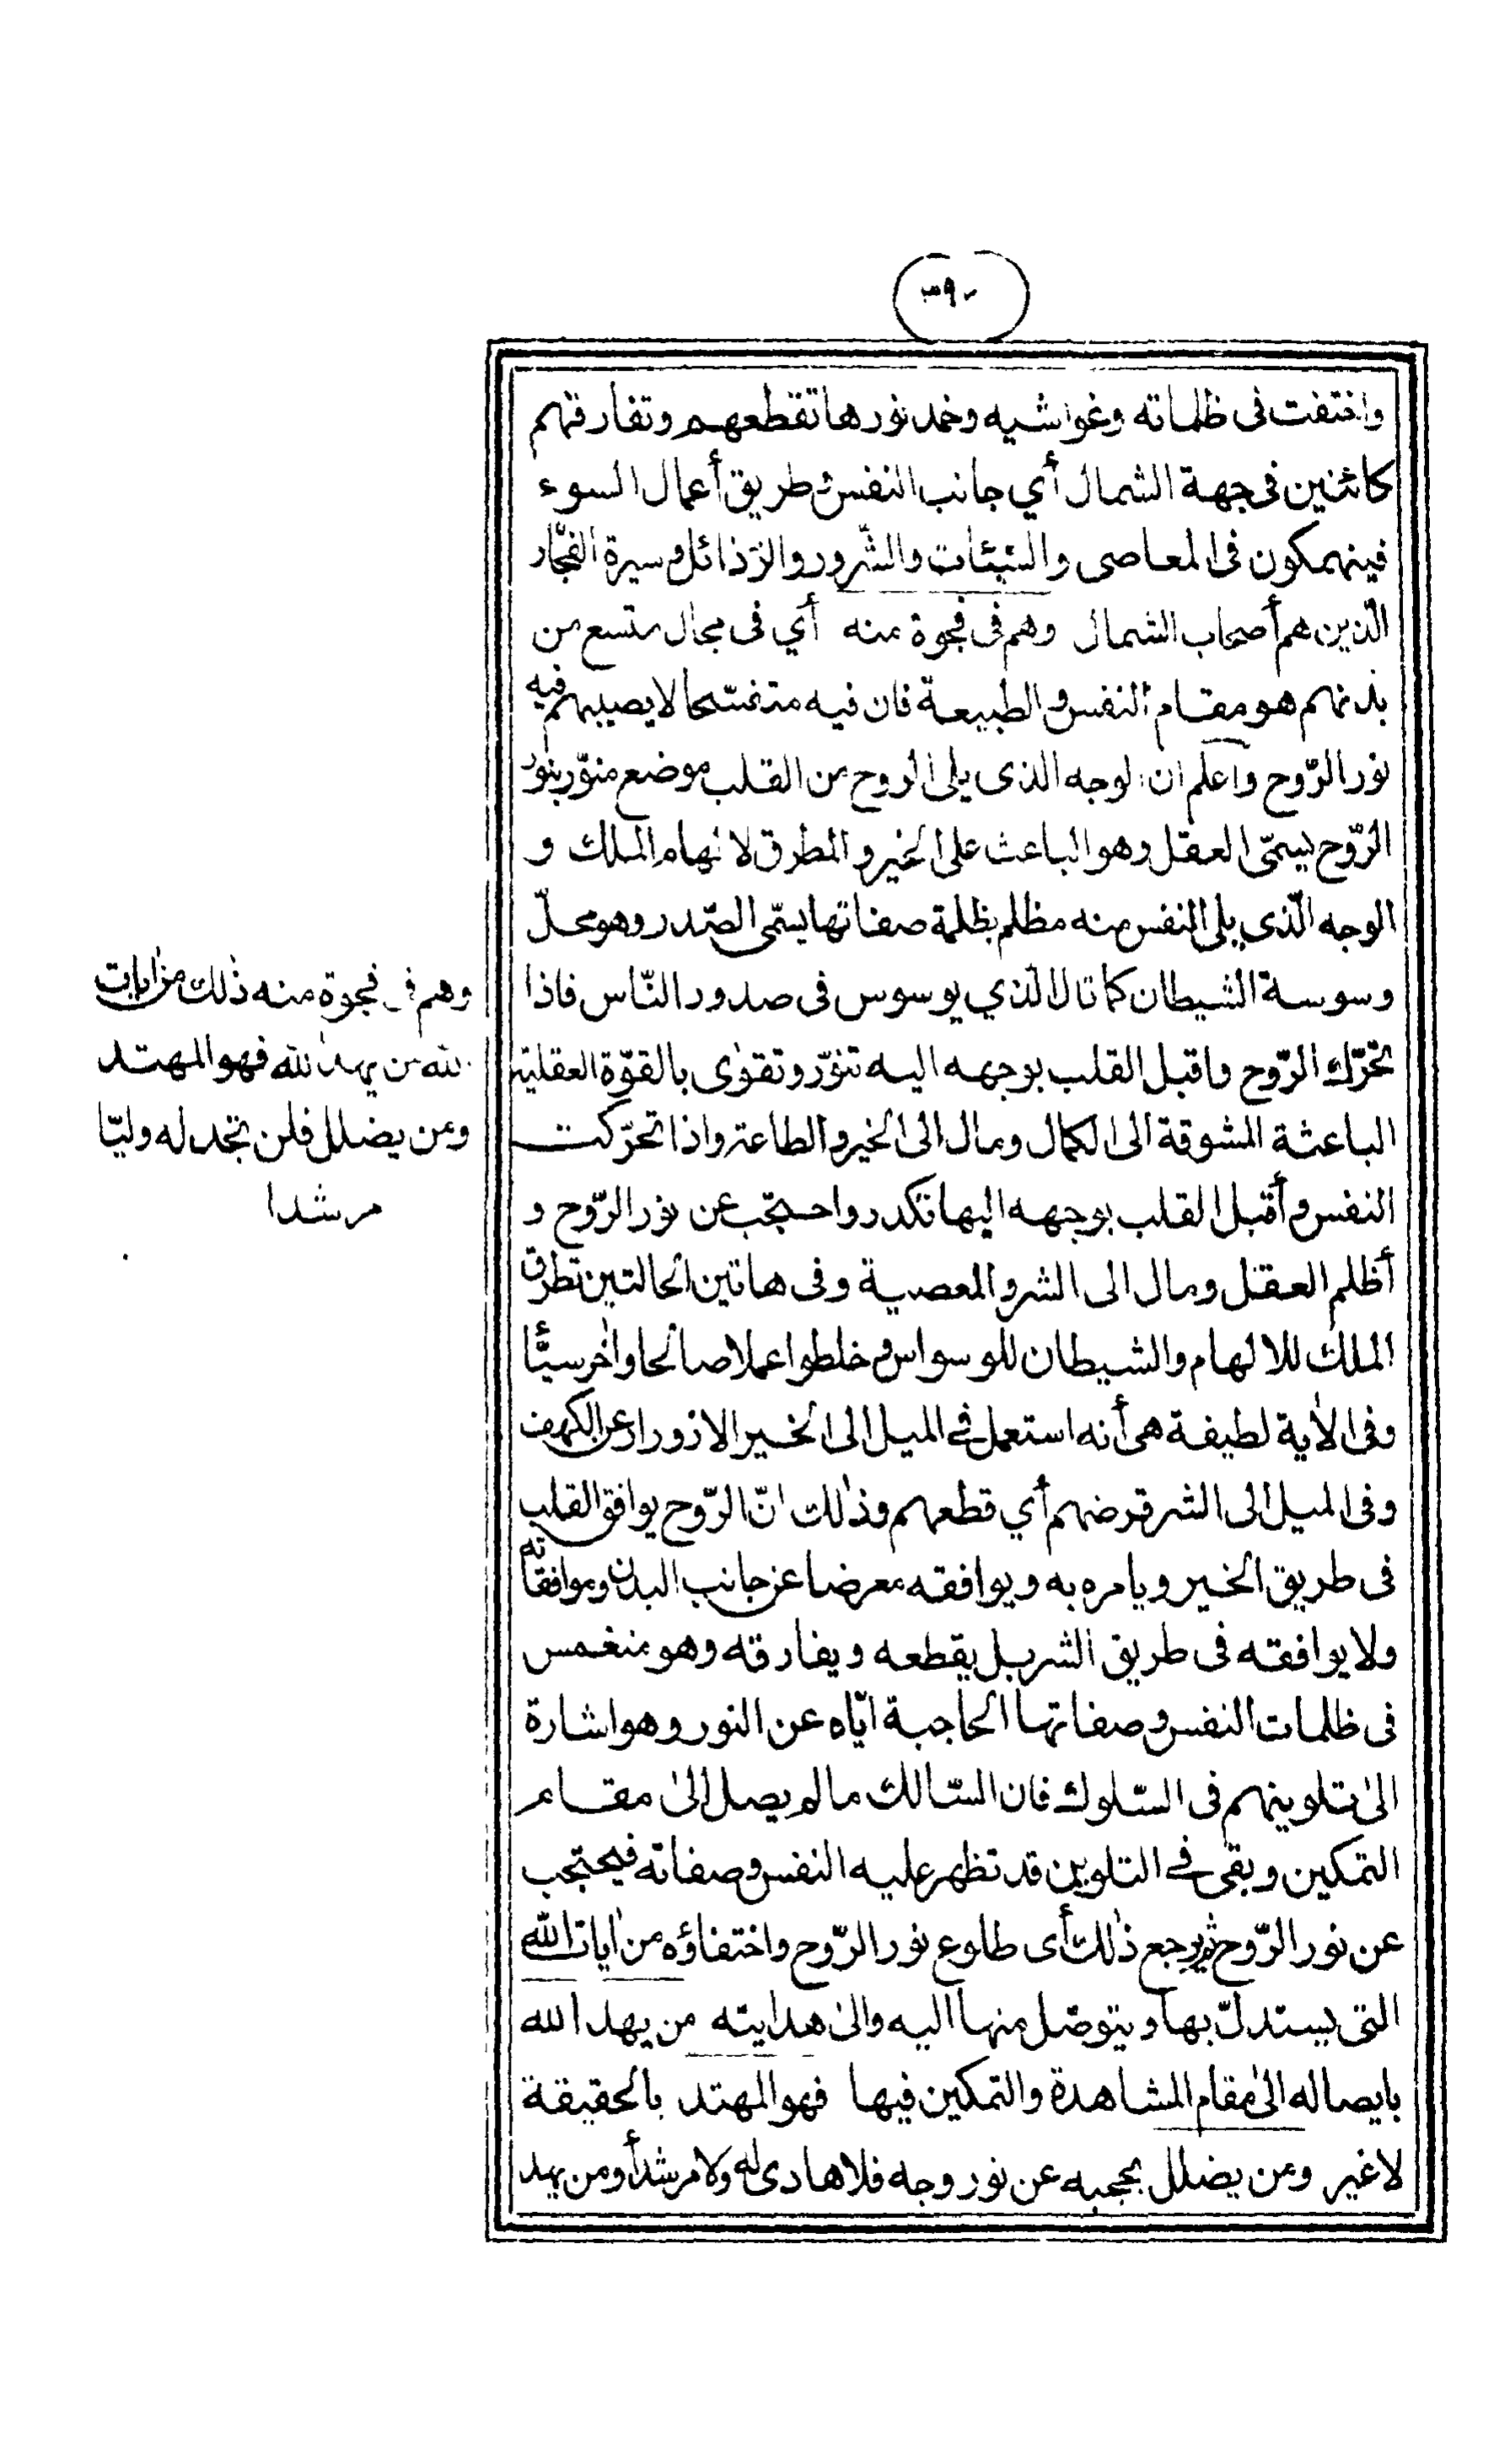 ٣٩٠
واختفت فى ظلماته وغواشيه وخمد نورها تقطعهم وتفارقهم
كائنين فى جهة الشمال أي جانب النفس و طريق أعمال السوء
فينهمكون فى المعاصى والسّيّئات والشّرور والرّذائل وسيرة الفجّار
الّذين هم أصحاب الشمال وهم فى فجوة منه أي فى مجال متسع من
بدنهم هو مقام النفس و الطبيعة فان فيه متفسّحا لا يصيبهم فيه
نور الرّوح واعلم ان الوجه الذى يلى الروح من القلب موضع منوّر بنور
الرّوح يسمّى العقل وهو الباعث على الخير و المطرق لالهام الملك و
الوجه الّذى يلى النفس منه مظلم بظلمة صفاتها يسمّى الصّدر وهو محلّ
وسوسة الشيطان كما قال الّذي يوسوس فى صدور النّاس فاذا
تحرّك الرّوح واقبل القلب بوجهه اليه تنوّر وتقوٰى بالقوّة العقلية
الباعثة المشوقة الى الكمال ومال الى الخير والطاعة واذا تحرّكت
النفس وأقبل القلب بوجهه اليها تكدر واحتجب عن نور الرّوح و
أظلم العقل ومال الى الشر والمعصية وفى هاتين الحالتين تطرق
الملك للالهام والشيطان للوسواس و خلطوا عملا صالحا واٰخر سيئا
وفى الاٰية لطيفة هى أنه استعمل فى الميل الى الخير الازورار عن الكهف
وفى الميل الى الشر قرضهم أي قطعهم وذٰلك انّ الرّوح يوافق القلب
فى طريق الخير ويامره به ويوافقه معرضا عن جانب البدن وموافقاته
ولا يوافقه فى طريق الشر بل يقطعه ويفارقه وهو منغمس
فى ظلمات النفس و صفاتها الحاجبة ايّاه عن النور وهو اشارة
الىٰ تلوينهم فى السّلوك فان السّالك ما لم يصل الىٰ مقام
التمكين وبقى فى التلوين قد تظهر عليه النفس و صفاته فيحتجب
عن نور الرّوح ثم يرجع ذٰلك أى طلوع نور الرّوح واختفاؤه من اٰيات الله
التى يستدلّ بها ويتوصّل منها اليه والىٰ هدايته من يهد الله
بايصاله الىٰ مقام المشاهدة والتمكين فيها فهو المهتد بالحقيقة
لا غير ومن يضلل بحجبه عن نور وجهه فلا هادى له ولا مرشد أو من يهد
وهم فى فجوة منه ذٰلك من اٰيات
الله من يهد الله فهو المهتد
ومن يضلل فلن تجد له وليّا
مرشدا